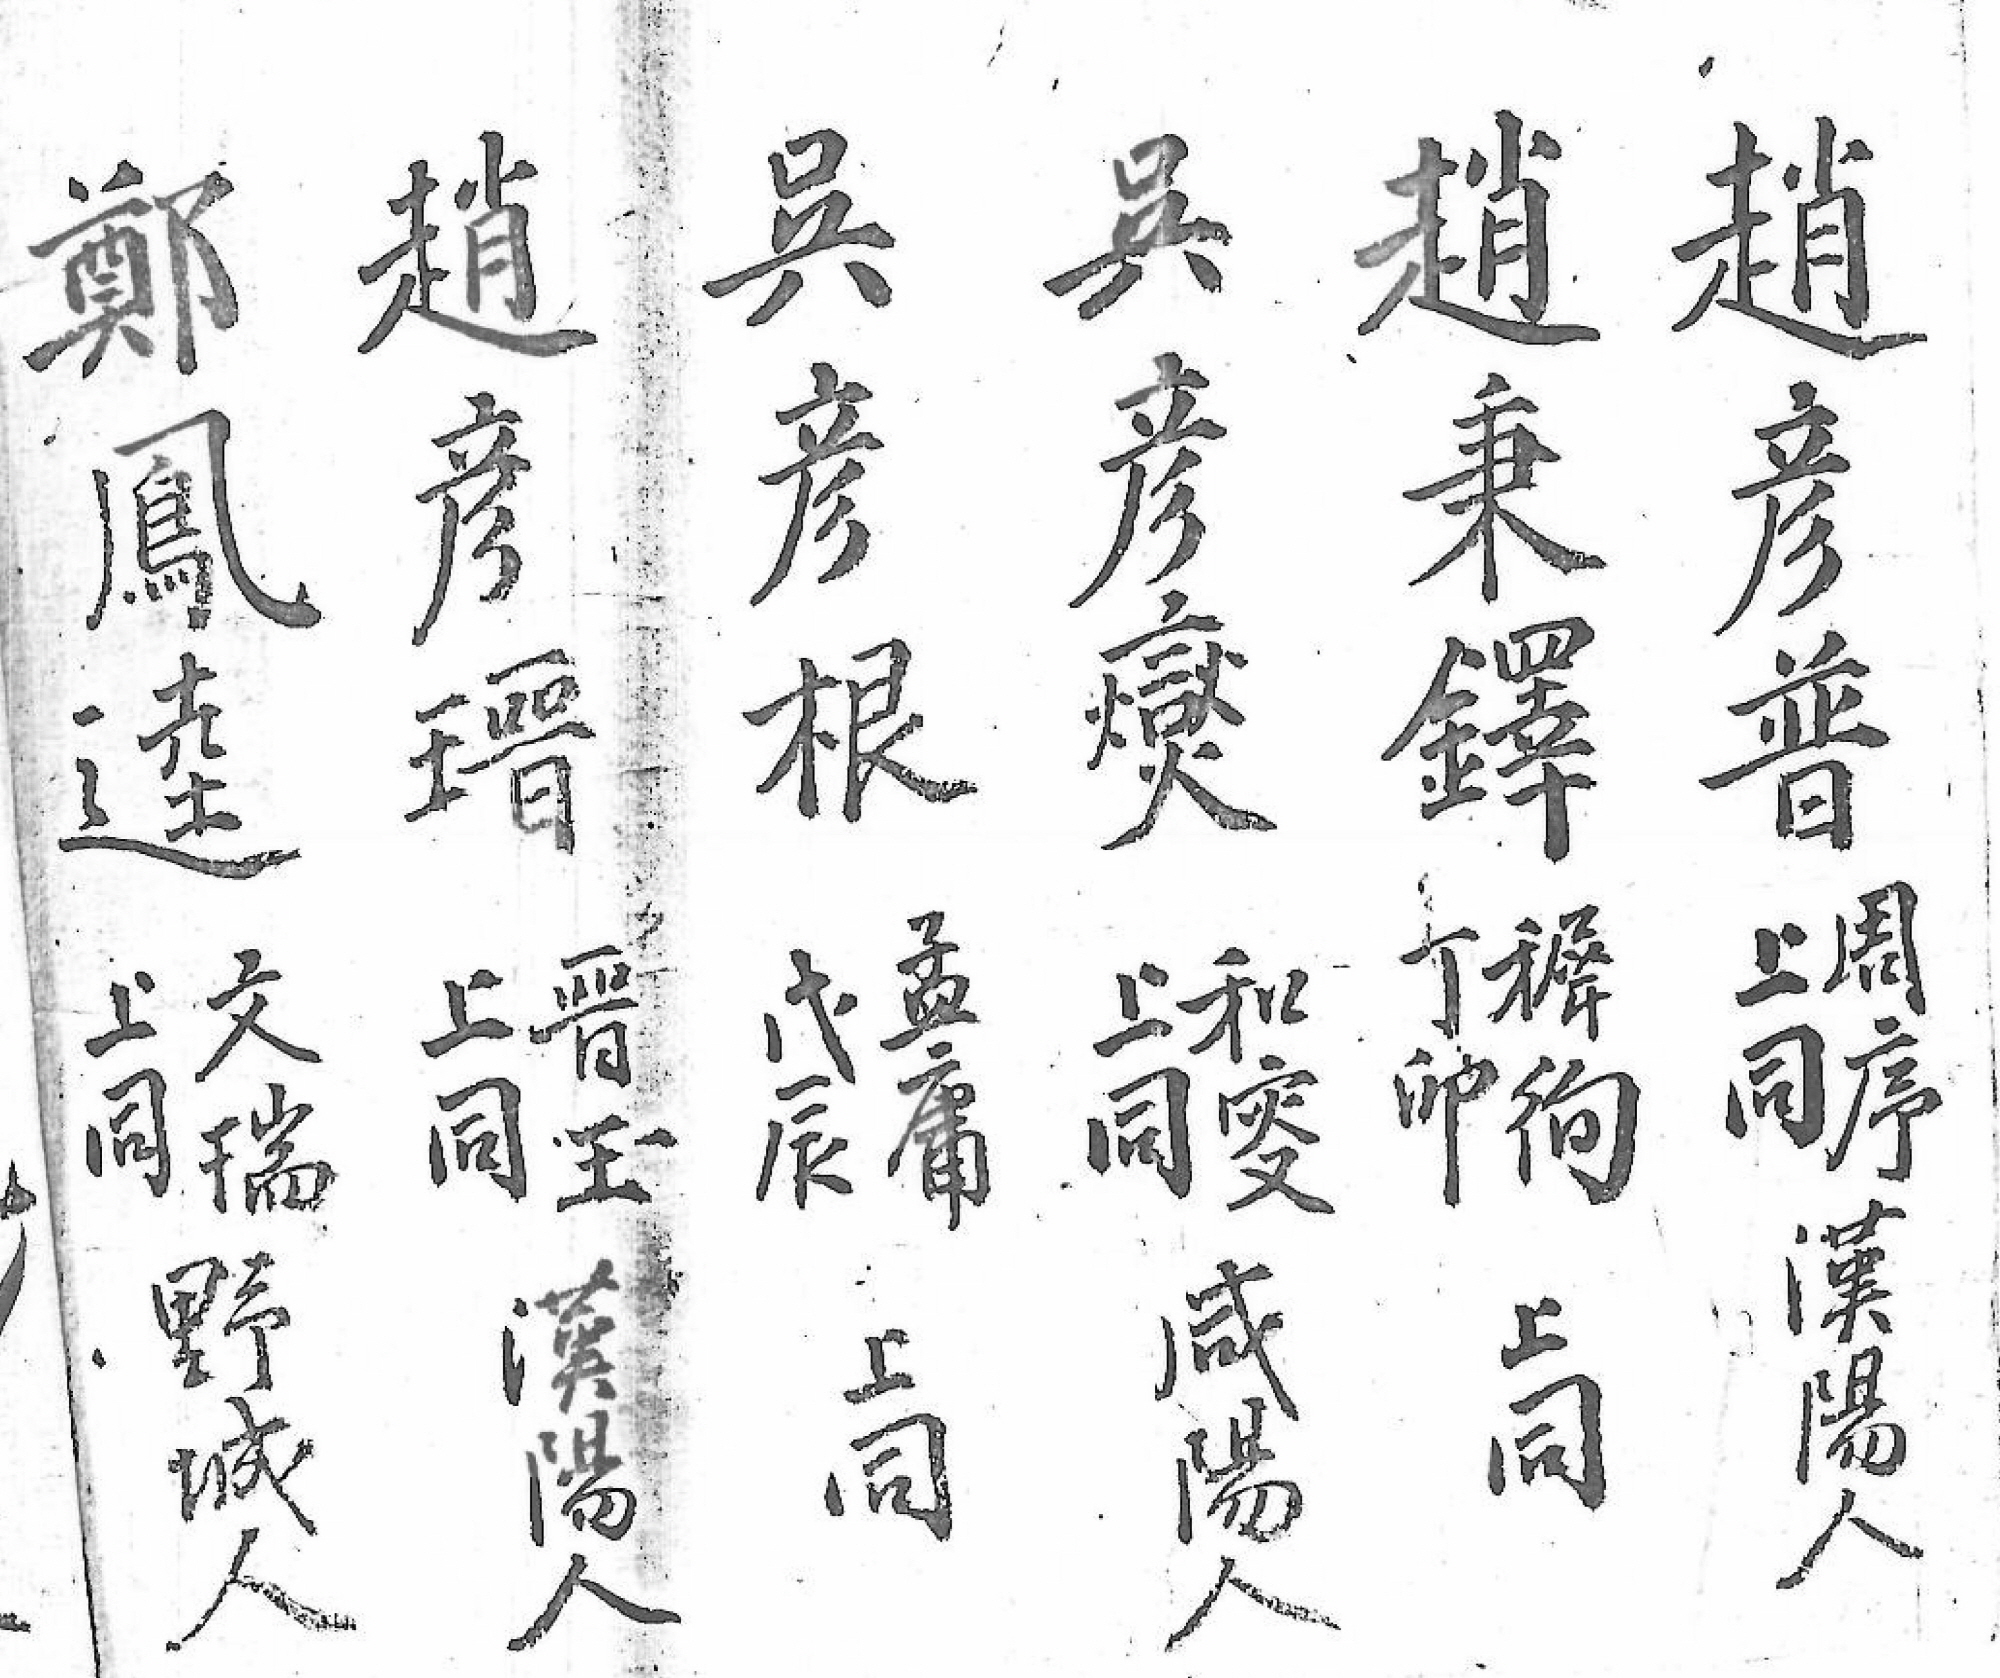 趙彦普 周序 上同 漢陽人
趙秉鐸 穉徇 丁卯 上同
吳彦燮 和叜 上同 咸陽人
吳彦根 孟庸 戊辰 上同
趙彦瑨 晉玉 上同 漢陽人
鄭鳳逵 文瑞 上同 野城人